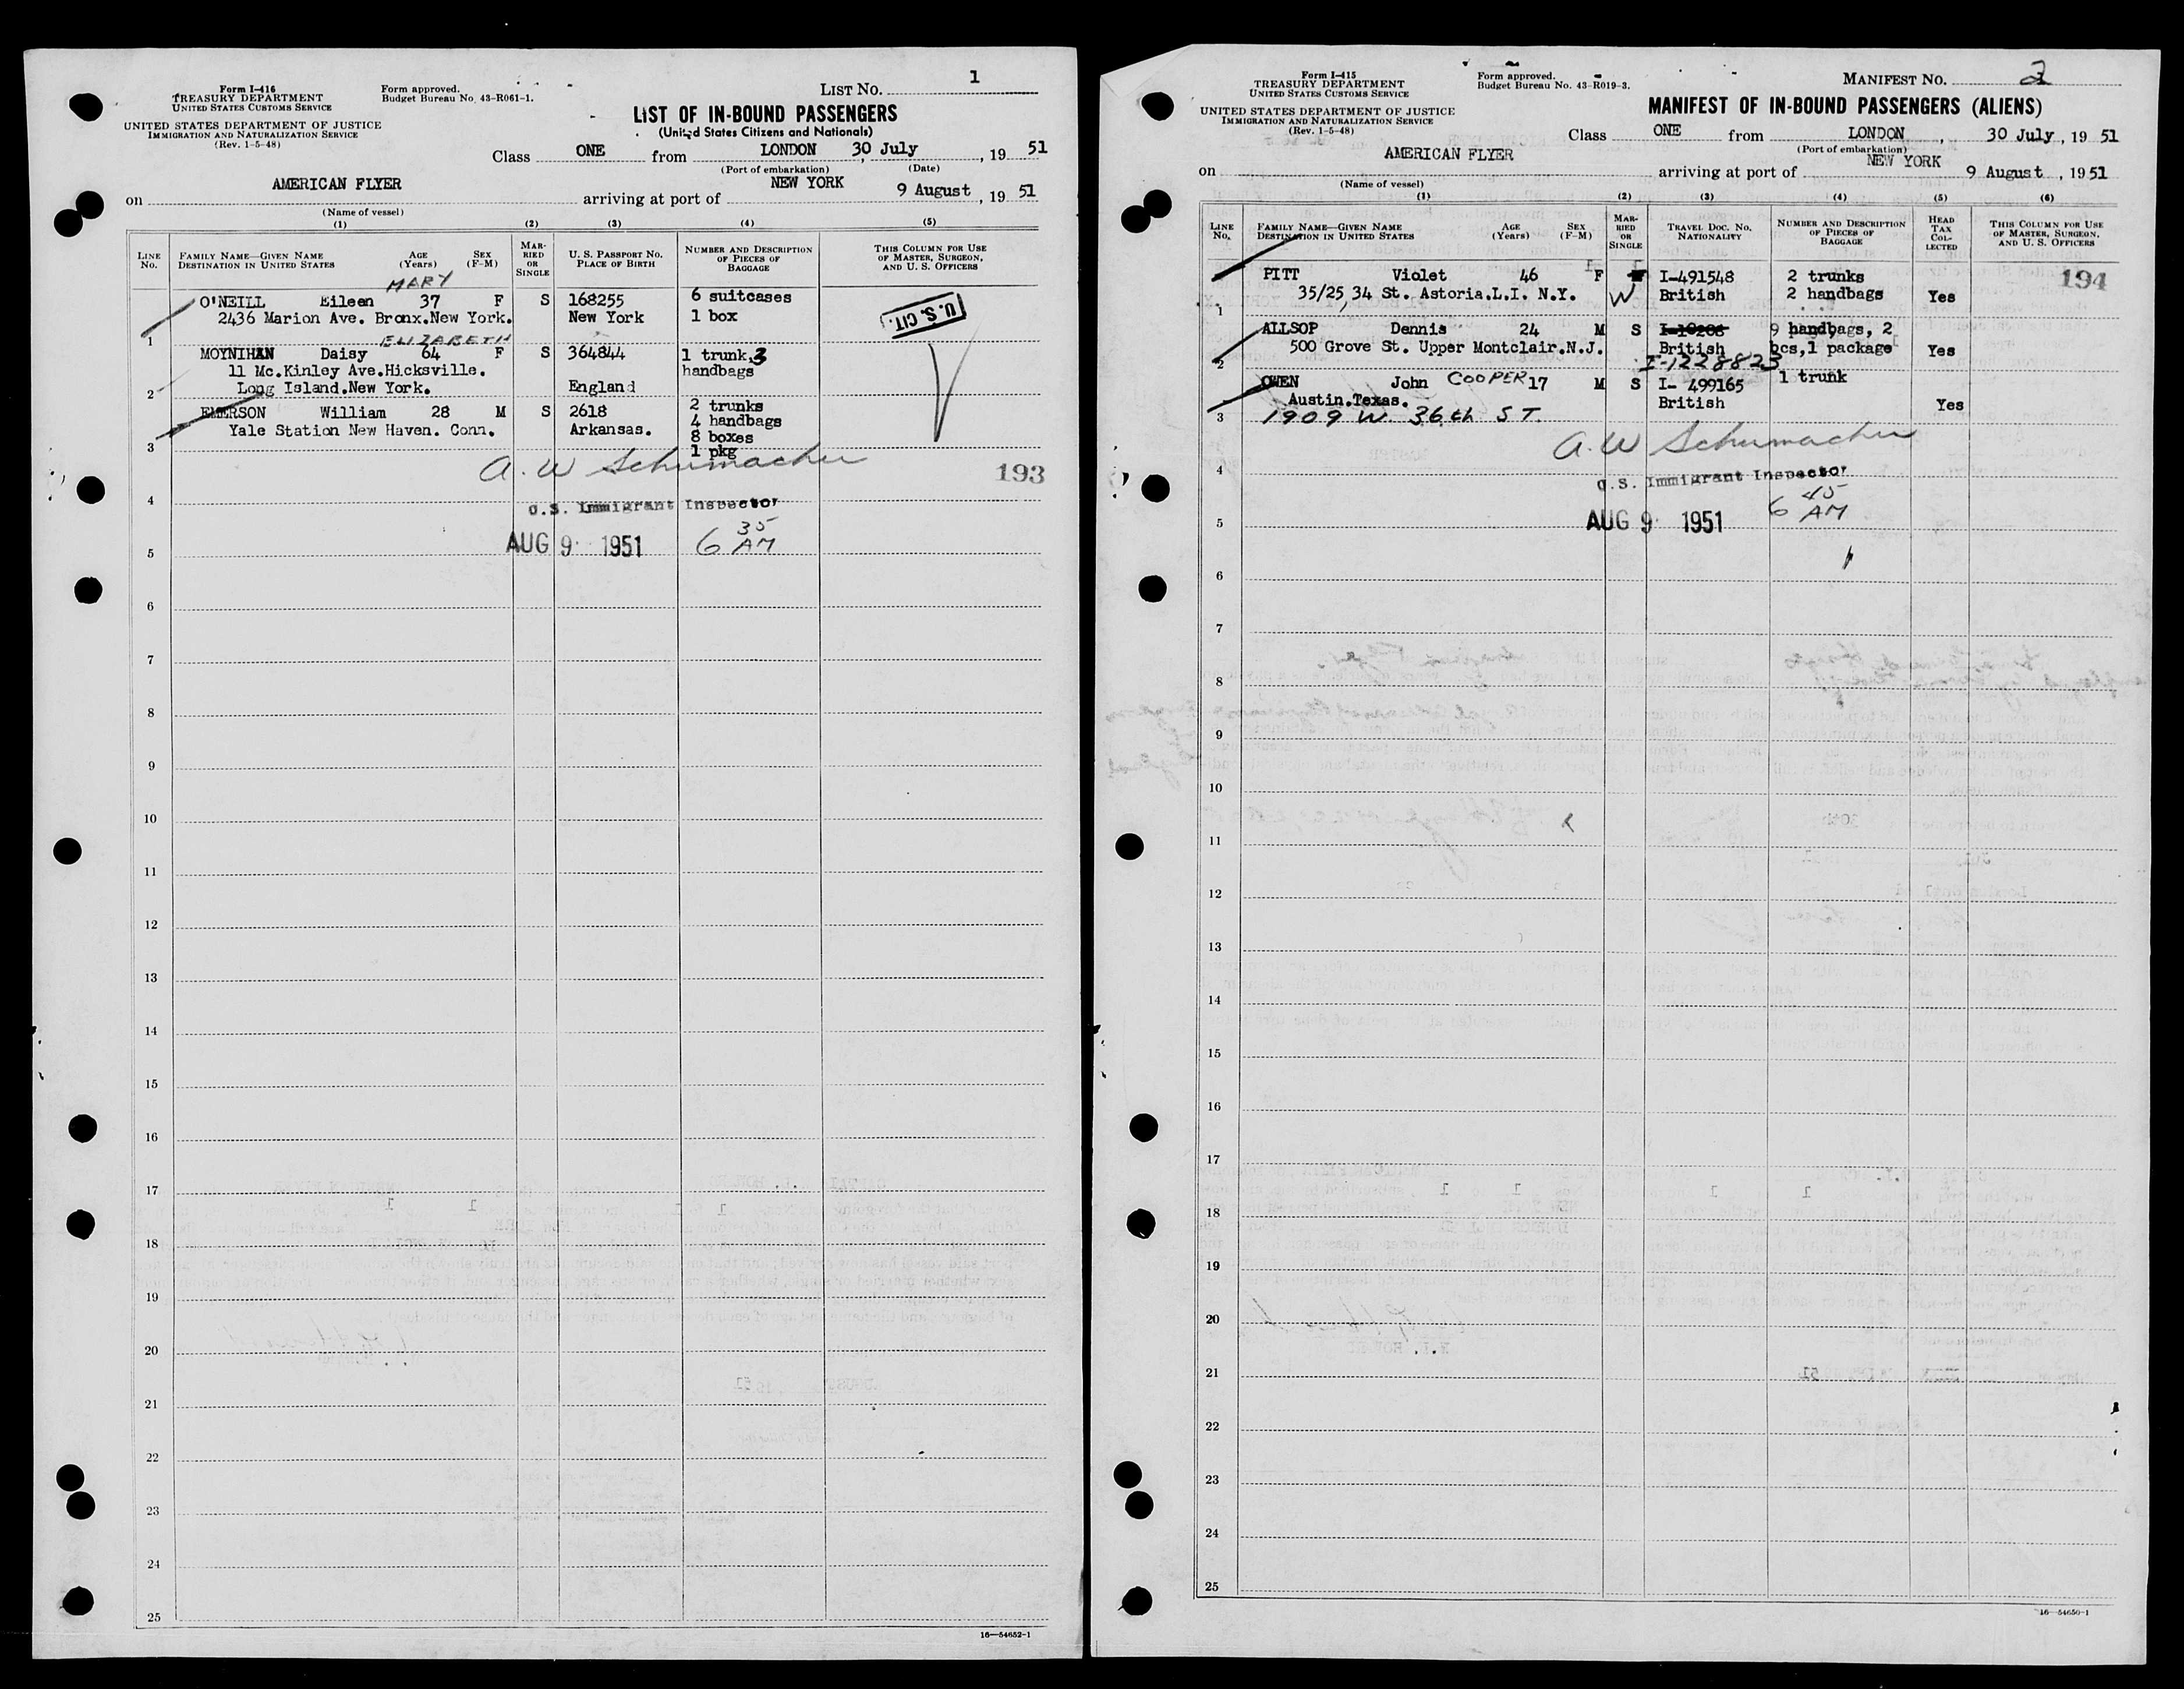 Form I-416
TREASURY DEPARTMENT
UNITED STATES CUSTOMS SERVICE
UNITED STATES DEPARTMENT OF JUSTICE
IMMIGRATION AND NATURALIZATION SERVICE
(Rev. 1-5-48)
Form approved.
Budget Bureau No. 43-R061-1.
LIST No. 1
LIST OF IN-BOUND PASSENGERS
(United States Citizens and Nationals)
Class ONE from LONDON, 30 July, 19 51
(Port of embarkation) (Date)
on AMERICAN FLYER arriving at port of NEW YORK 9 August, 19 51
(Name of vessel)
(1) (2) (3) (4) (5)
LINE No.
FAMILY NAME—GIVEN NAME
DESTINATION IN UNITED STATES
AGE (Years)
SEX (F-M)
MARRIED OR SINGLE
U. S. PASSPORT NO.
PLACE OF BIRTH
NUMBER AND DESCRIPTION OF PIECES OF BAGGAGE
THIS COLUMN FOR USE OF MASTER, SURGEON, AND U. S. OFFICERS
MARY
O'NEILL Eileen 37 F S 168255 6 suitcases
2436 Marion Ave. Bronx.New York. New York 1 box
U. S. CIT.
1
ELIZABETH
MOYNIHAN Daisy 64 F S 364844 1 trunk,3
11 Mc.Kinley Ave.Hicksville. handbags
2 Long Island.New York. England
EMERSON William 28 M S 2618 2 trunks
Yale Station New Haven. Conn. Arkansas. 4 handbags
8 boxes
3 1 pkg
A. W Schumacher
193
4
U.S. Immigrant Inspector
AUG 9 1951 6 35 AM
5
6
7
8
9
10
11
12
13
14
15
16
17
18
19
20
21
22
23
24
25
16—54652-1
Form I-415
TREASURY DEPARTMENT
UNITED STATES CUSTOMS SERVICE
UNITED STATES DEPARTMENT OF JUSTICE
IMMIGRATION AND NATURALIZATION SERVICE
(Rev. 1-5-48)
Form approved.
Budget Bureau No. 43-R019-3.
MANIFEST NO. 2
MANIFEST OF IN-BOUND PASSENGERS (ALIENS)
Class ONE from LONDON, 30 July, 19 51
(Port of embarkation)
on AMERICAN FLYER arriving at port of NEW YORK 9 August, 19 51
(Name of vessel)
(1) (2) (3) (4) (5) (6)
LINE NO.
FAMILY NAME—GIVEN NAME
DESTINATION IN UNITED STATES
AGE (Years)
SEX (F-M)
MARRIED OR SINGLE
TRAVEL DOC. NO.
NATIONALITY
NUMBER AND DESCRIPTION OF PIECES OF BAGGAGE
HEAD TAX COLLECTED
THIS COLUMN FOR USE OF MASTER, SURGEON, AND U. S. OFFICERS
PITT Violet 46 F I-491548 2 trunks
194
35/25,34 St. Astoria.L.I. N.Y. W British 2 handbags Yes
1
ALLSOP Dennis 24 M S 9 handbags, 2
500 Grove St. Upper Montclair.N.J. British pcs,1 package Yes
2 I-1228823
OWEN John COOPER 17 M S I- 499165 1 trunk
Austin.Texas. British Yes
3 1909 W. 36th ST.
A. W Schumacher
4
U.S. Immigrant Inspector
AUG 9 1951 6 45 AM
5
6
7
8
9
10
11
12
13
14
15
16
17
18
19
20
21
22
23
24
25
16—54650-1